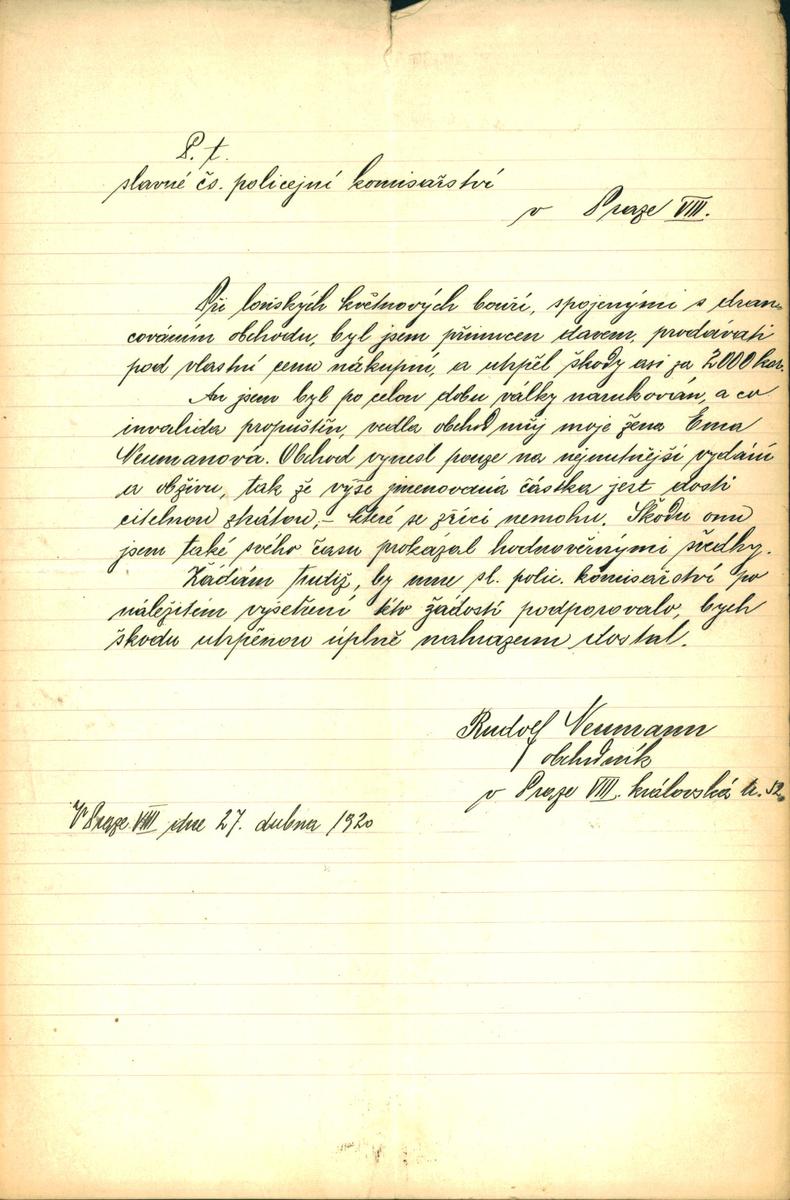 P. t.
slavné čs. policejní komisařství
v Praze VIII.
Při loňských květnových bouří, spojenými s dran-
cováním obchodu, byl jsem přinucen davem, prodávati
pod vlastní cenu nákupní, a utrpěl škody asi za 2000 kor.
An jsem byl po celou dobu války narukován, a co
invalida propuštěn, vedla obchod můj moje žena Ema
Neumanová. Obchod vynesl pouze na nejnutnější vydání
a obživu, tak že výše jmenovaná částka jest dosti
citelnou ztrátou, – které se zříci nemohu. Škodu onu
jsem také svého času prokázal hodnověrnými svědky.
Žádám tudíž, by mne sl. polic. komisařství po
náležitém vyšetření této žádosti podporovalo, bych
škodu utrpěnou úplně nahrazenu dostal.
Rudolf Neumann
obchodník
v Praze VIII. královská tr. 52.
V Praze VIII dne 27. dubna 1920